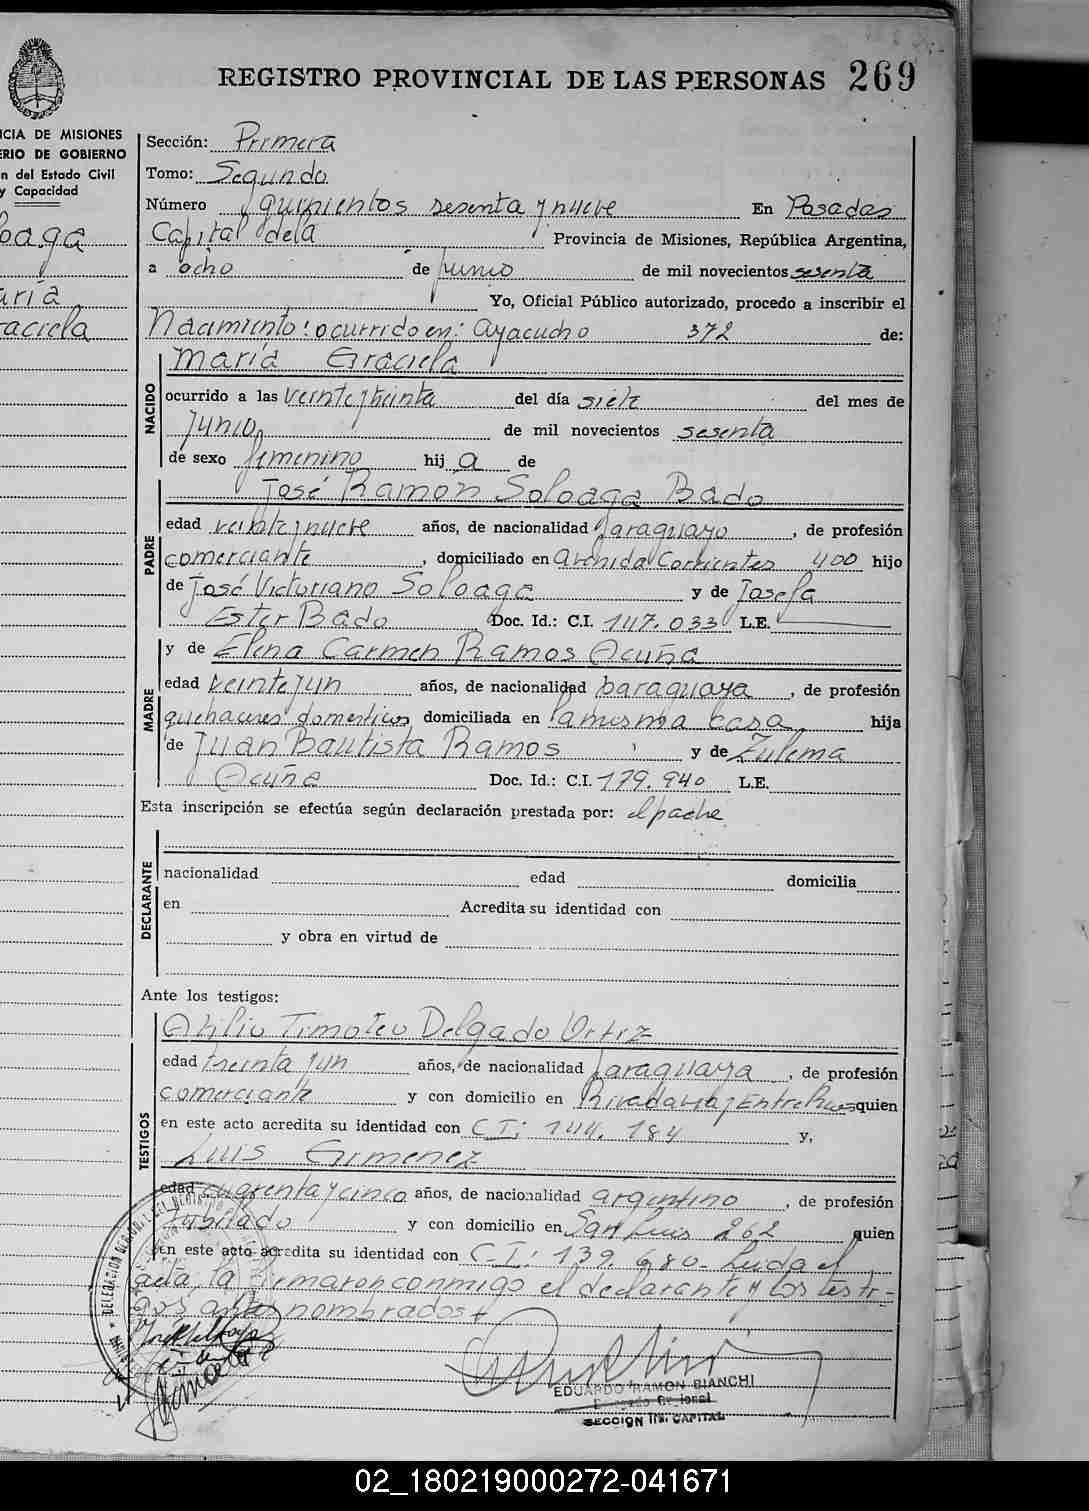 REGISTRO PROVINCIAL DE LAS PERSONAS 269
CIA DE MISIONES
ERIO DE GOBIERNO
n del Estado Civil
y Capacidad
oaga
aría
raciela
Sección: Primera
Tomo: Segundo
Número quinientos sesenta y nueve En Posadas
Capital de la Provincia de Misiones, República Argentina,
a ocho de Junio de mil novecientos sesenta
Yo, Oficial Público autorizado, procedo a inscribir el
Nacimiento: ocurrido en: Ayacucho 372 de:
NACIDO
María Graciela
ocurrido a las veinte y treinta del día siete del mes de
Junio de mil novecientos sesenta
de sexo femenino hij a de
PADRE
José Ramón Soloaga Bado
edad veinte y nueve años, de nacionalidad paraguayo, de profesión
comerciante, domiciliado en Avenida Corrientes 400 hijo
de José Victoriano Soloaga y de Josefa
Ester Bado Doc. Id.: C.I. 147.033 L.E.
MADRE
y de Elena Carmen Ramos Acuña
edad veinte y un años, de nacionalidad paraguaya, de profesión
quehaceres domesticos domiciliada en la misma casa hija
de Juan Bautista Ramos y de Zulema
Acuña Doc. Id.: C.I. 179.940 L.E.
Esta inscripción se efectúa según declaración prestada por: el padre
DECLARANTE
nacionalidad edad domicilia
en Acredita su identidad con
y obra en virtud de
Ante los testigos:
TESTIGOS
Atilio Timoteo Delgado Ortiz
edad treinta y un años, de nacionalidad paraguaya, de profesión
comerciante y con domicilio en Rivadavia y Entre Rios quien
en este acto acredita su identidad con C.I: 144.184 y,
Luis Gimenez
edad cuarenta y cinco años, de nacionalidad argentino, de profesión
jubilado y con domicilio en San Luis 262 quien
en este acto acredita su identidad con C.I: 139.680- Leida el
acta, la firmaron conmigo el declarante y los testi-
gos antes nombrados
EDUARDO RAMON BIANCHI
SECCION 1ra. CAPITAL
02_180219000272-041671